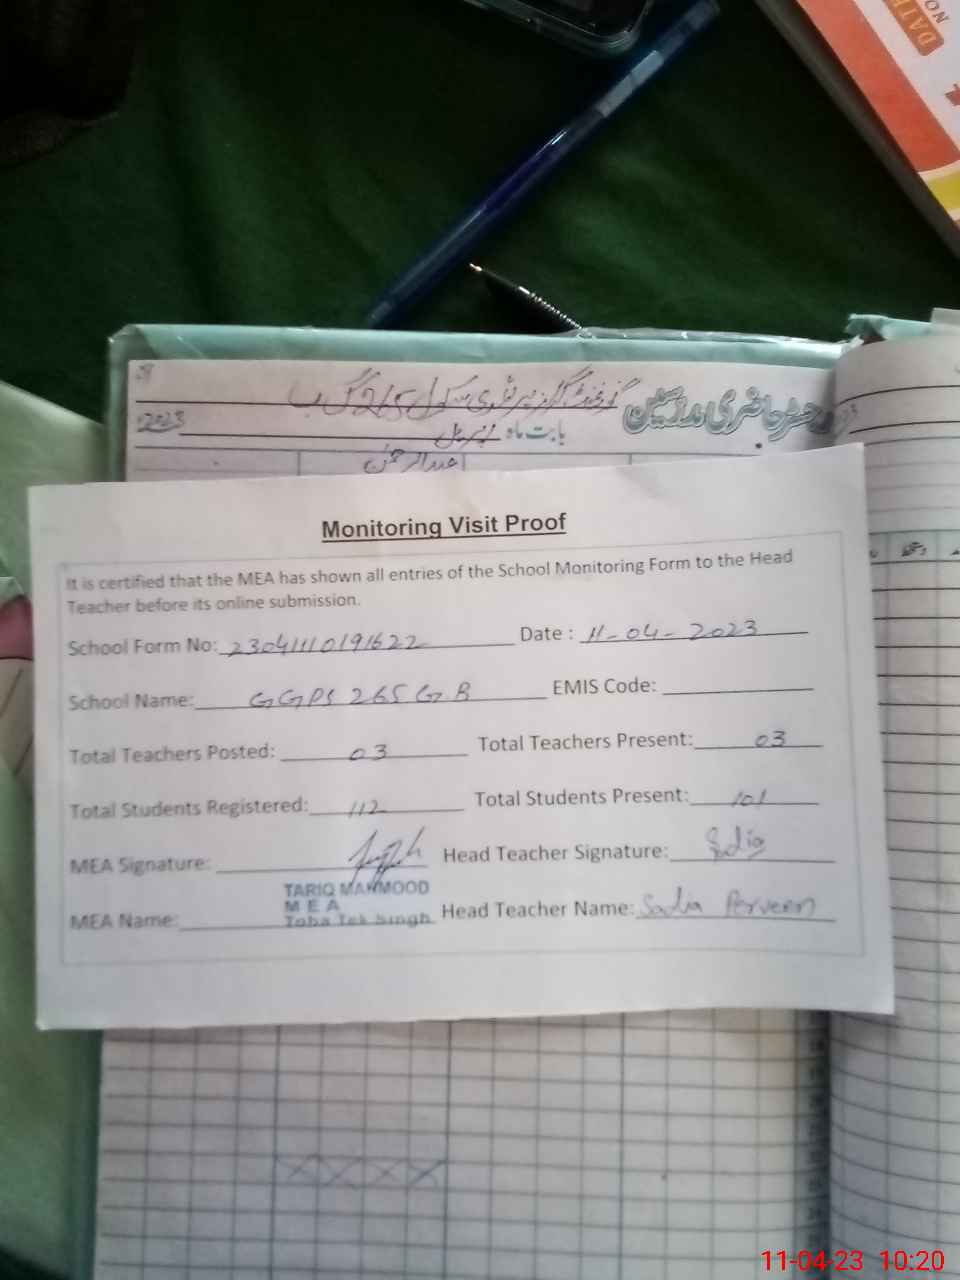 DATE
NO
رجسٹر حاضری مدرسین گورنمنٹ گرلز پرائمری سکول 265 گ ب
بابت ماہ اپریل 2023
Monitoring Visit Proof
It is certified that the MEA has shown all entries of the School Monitoring Form to the Head
Teacher before its online submission.
School Form No: 23041110191622 Date : 11-04-2023
School Name: GGPS 265 GB EMIS Code:
Total Teachers Posted: 03 Total Teachers Present: 03
Total Students Registered: 112 Total Students Present: 101
MEA Signature: Head Teacher Signature: Sadia
TARIQ MAHMOOD
M E A
MEA Name: Toba Tek Singh Head Teacher Name: Sadia Perveen
11-04-23 10:20